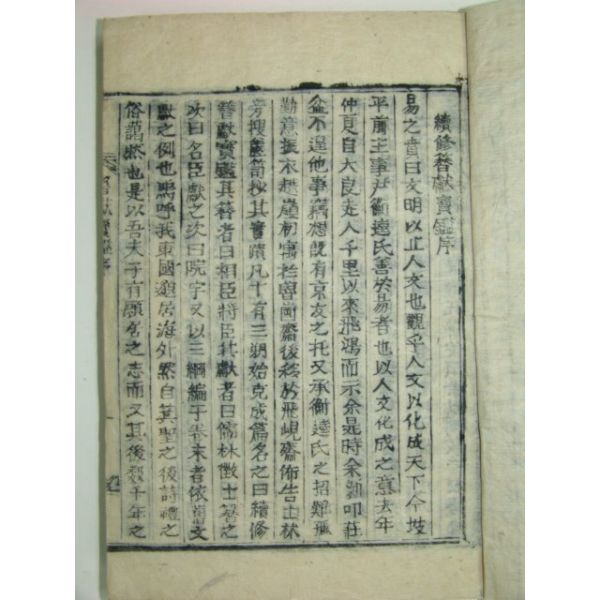 續修簪獻寶鑑序
易之賁曰文明以止人文也觀乎人文以化成天下今坡
平前主事尹衡逵氏善於易者也以人文化成之意去年
仲夏自大良走人千里以來飛鴻而示余是時余勤叩莊
盆不遑他事窩想旣有京友之托又承衡逵氏之招難孤
勤意振衣越嶺初寓於魯岡齋後移於飛峴齋佈告士林
旁搜巾笥抄其實蹟凡十有三朔始克成篇名之曰續修
簪獻寶鑑其簪者曰相臣將臣其獻者曰儒林徵士簪之
次曰名臣獻之次曰院宇又以三綱編于卷末者依舊文
獻之例也嗚呼我東國邈居海外然自箕聖之後詩禮之
俗藹然也是以吾夫子有願居之志而又其後數千年之